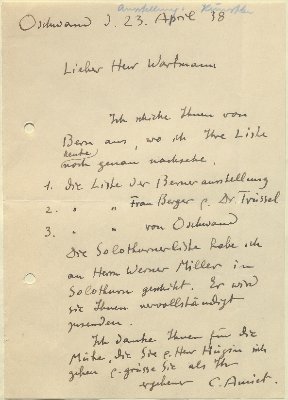 Ausstellung. Künstler
Oschwand d. 23. April 38
Lieber Herr Wartmann
Ich schicke Ihnen von
Bern aus, wo ich Ihre Liste
heute
noch genau nachsehe.
1. Die Liste der Bernerausstellung
2. " " Frau Berger & Dr. Trüssel
3. " " von Oschwand
Die Solothurnerliste habe ich
an Herrn Werner Miller in
Solothurn geschickt. Er wird
sie Ihnen vervollständigt
zusenden.
Ich danke Ihnen für die
Mühe, die Sie & Herr Hügin sich
geben & grüsse Sie als Ihr
ergebener C. Amiet.